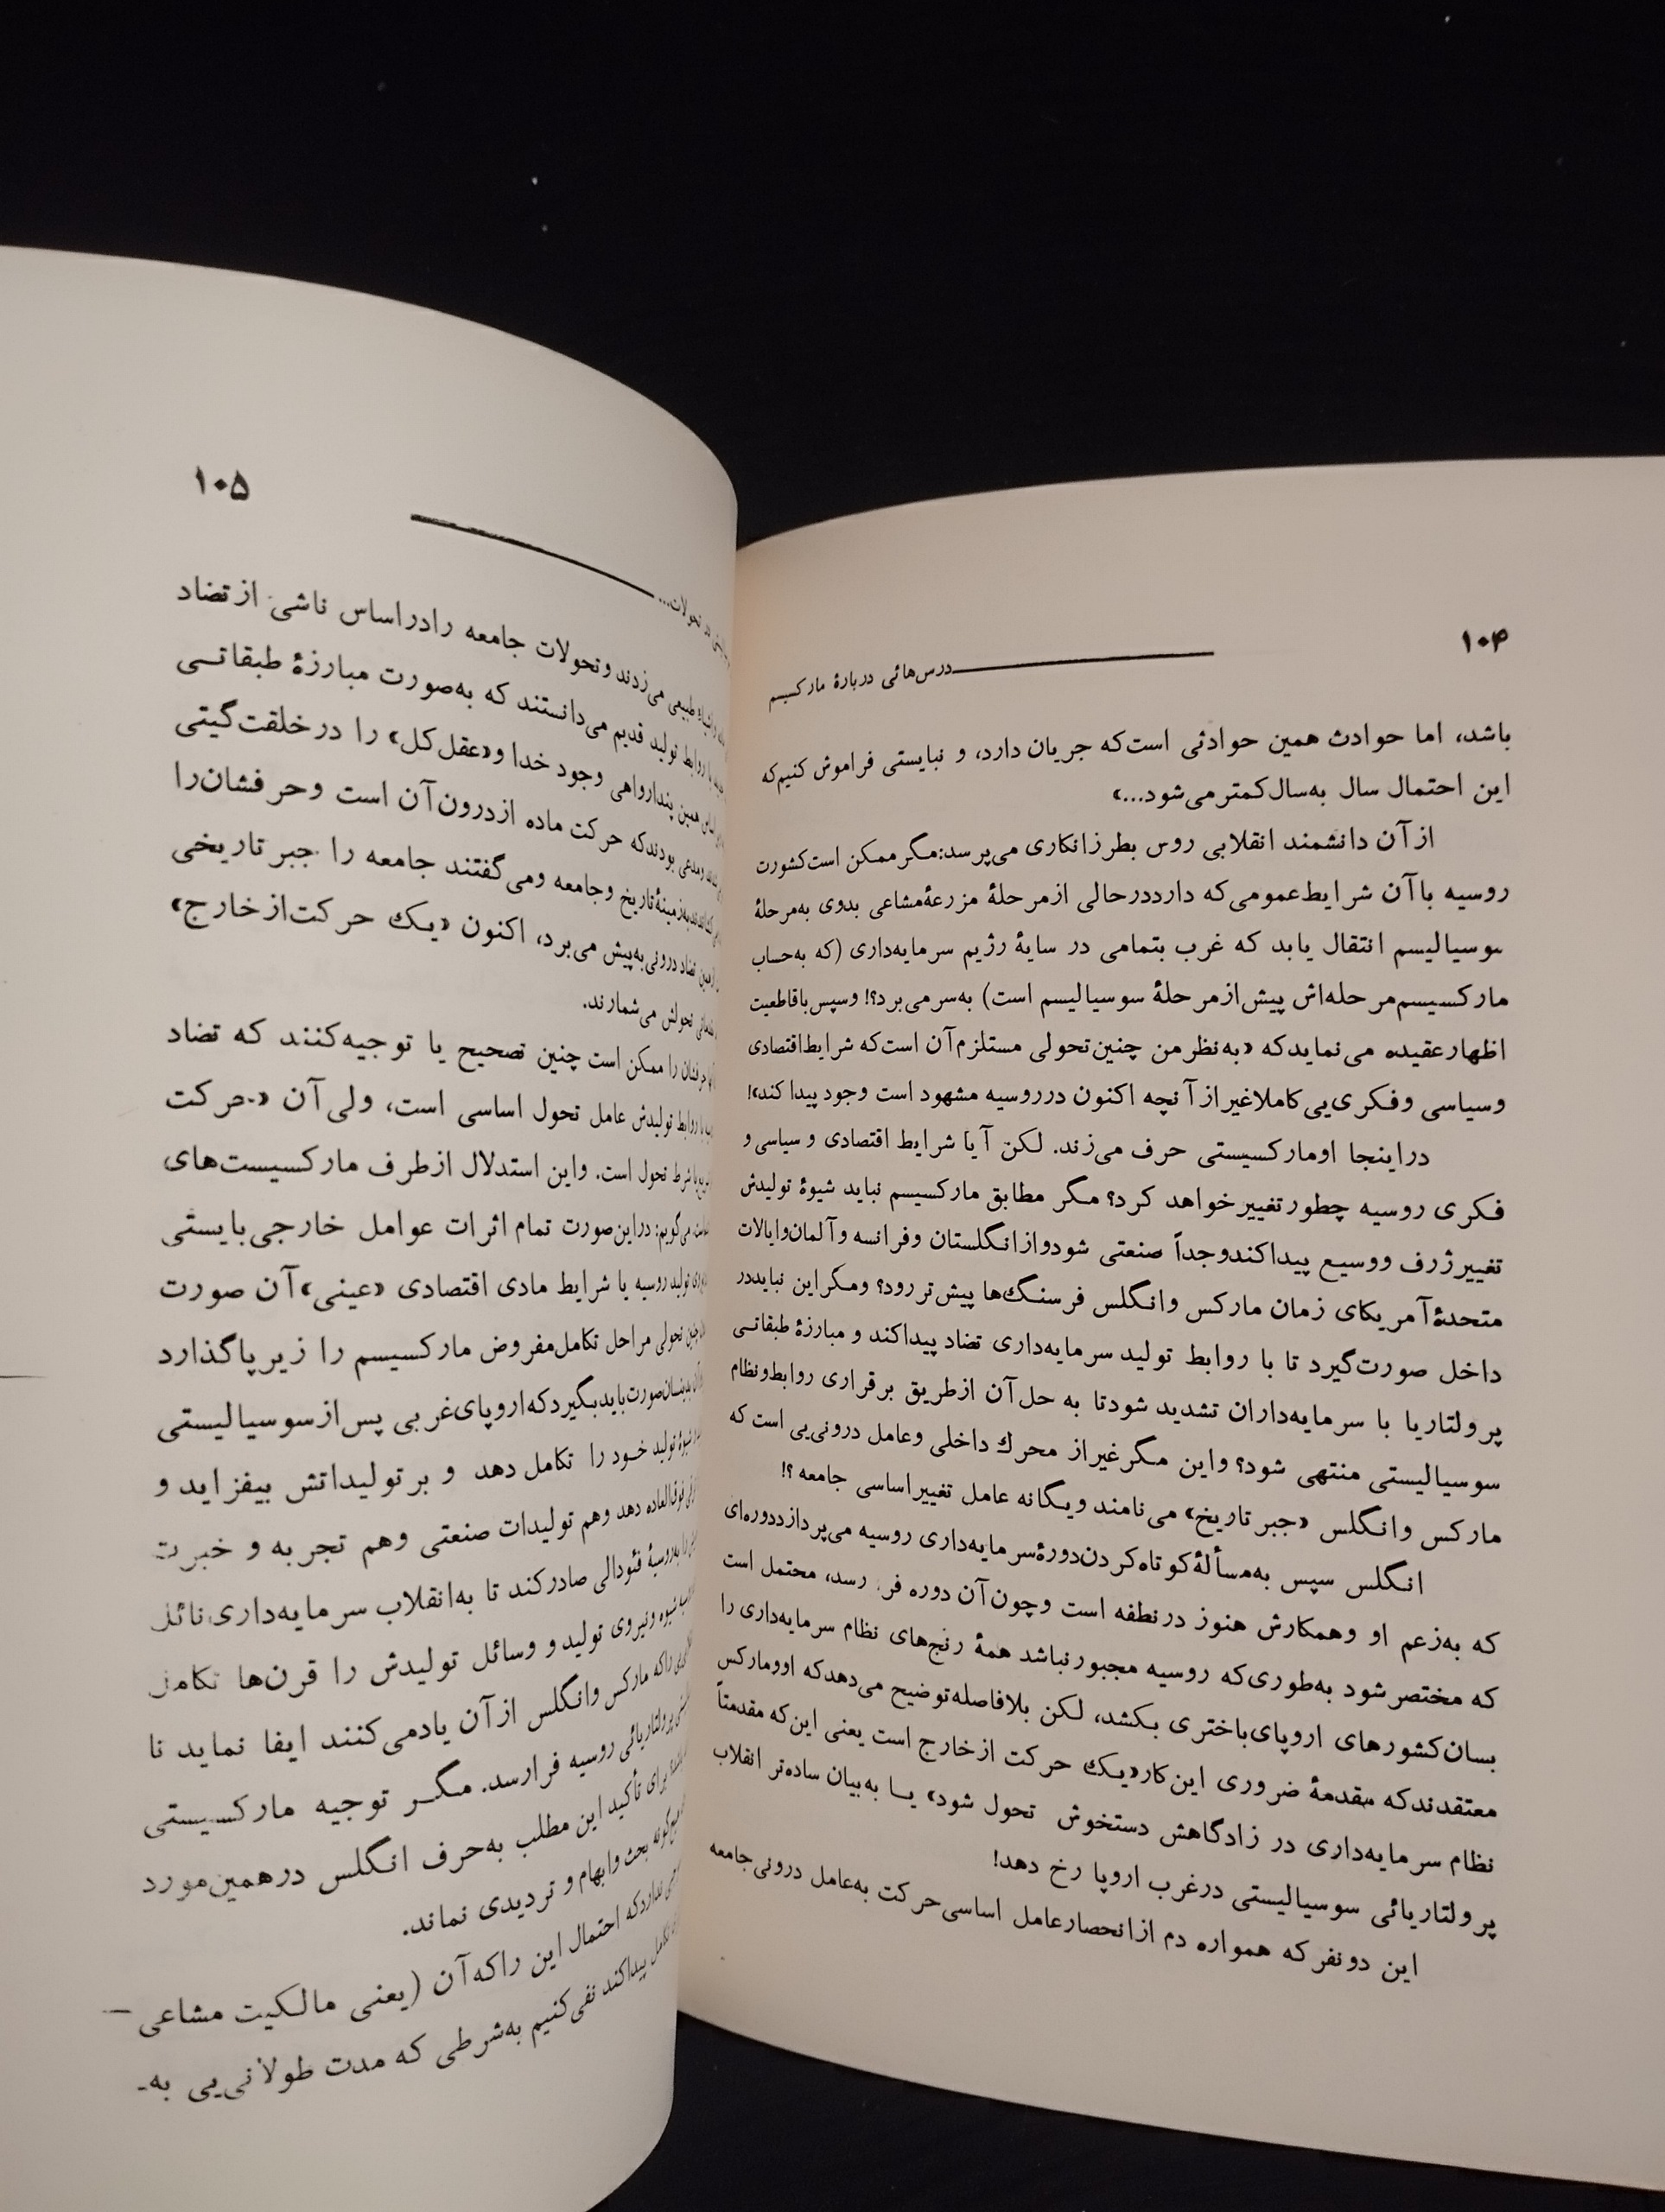 ۱۰۴
درس‌هائی دربارهٔ مارکسیسم
باشد، اما حوادث همین حوادثی است‌که جریان دارد، و نبایستی فراموش کنیم‌که
این احتمال سال به‌سال‌کمترمی‌شود...»
ازآن دانشمند انقلابی روس بطرزانکاری می‌پرسد:مگرممکن است‌کشورت
روسیه باآن شرایط‌عمومی‌که دارددرحالی ازمرحلهٔ مزرعهٔمشاعی بدوی به‌مرحلهٔ
سوسیالیسم انتقال یابد که غرب بتمامی در سایهٔ رژیم سرمایه‌داری (که به‌حساب
مارکسیسم‌مرحله‌اش پیش‌ازمرحلهٔ سوسیالیسم است) به‌سرمی‌برد؟! وسپس‌باقاطعیت
اظهارعقیده می‌نمایدکه «به‌نظرمن چنین‌تحولی مستلزم‌آن است‌که شرایط‌اقتصادی
وسیاسی وفکری‌یی‌کاملاغیرازآنچه اکنون درروسیه مشهود است وجود پیداکند»!
دراینجا اومارکسیستی حرف می‌زند. لکن آیا شرایط اقتصادی و سیاسی و
فکری روسیه چطورتغییرخواهد کرد؟ مگر مطابق مارکسیسم نباید شیوهٔ تولیدش
تغییرژرف ووسیع پیداکندوجداً صنعتی شودوازانگلستان وفرانسه وآلمان‌وایالات
متحدهٔ‌آمریکای زمان مارکس وانگلس فرسنگ‌ها پیش‌تررود؟ ومگراین نبایددر
داخل صورت‌گیرد تا با روابط تولید سرمایه‌داری تضاد پیداکند و مبارزهٔ طبقاتی
پرولتاریا با سرمایه‌داران تشدید شودتا به حل‌آن ازطریق برقراری روابط‌ونظام
سوسیالیستی منتهی شود؟ واین مگرغیراز محرك داخلی وعامل درونی‌یی است که
مارکس وانگلس «جبرتاریخ» می‌نامند ویگانه عامل تغییراساسی جامعه ؟!
انگلس سپس به‌مسألهٔ‌کوتاه‌کردن‌دورهٔ‌سرمایه‌داری روسیه می‌پردازددوره‌ای
که به‌زعم او وهمکارش هنوز درنطفه است وچون‌آن دوره فرا رسد، محتمل است
که مختصرشود به‌طوری‌که روسیه مجبورنباشد همهٔ رنج‌های نظام سرمایه‌داری را
بسان‌کشورهای اروپای‌باختری بکشد، لکن بلافاصله‌توضیح می‌دهدکه اوومارکس
معتقدندکه مقدمهٔ ضروری این‌کار«یك حرکت ازخارج است یعنی این‌که مقدمتاً
نظام سرمایه‌داری در زادگاهش دستخوش تحول شود» یا به‌بیان ساده‌تر انقلاب
پرولتاریائی سوسیالیستی درغرب اروپا رخ دهد!
این دونفرکه همواره دم ازانحصارعامل اساسی‌حرکت به‌عامل درونی‌جامعه
۱۰۵
در تحولات...
طبیعی می‌زدند وتحولات جامعه رادراساس ناشی ازتضاد
روابط تولید قدیم می‌دانستند که به‌صورت مبارزهٔ طبقاتی
همین پندارواهی وجود خدا و«عقل‌کل» را درخلقت‌گیتی
ومدعی بودندکه حرکت ماده ازدرون‌آن است وحرفشان‌را
به‌زمینهٔ‌تاریخ وجامعه ومی‌گفتند جامعه را جبرتاریخی
تضاد درونی‌به‌پیش می‌برد، اکنون «یك حرکت‌ازخارج»
تحولش می‌شمارند.
حرفشان را ممکن است چنین تصحیح یا توجیه‌کنند که تضاد
با روابط تولیدش عامل تحول اساسی است، ولی آن «حرکت
شرط تحول است. واین استدلال ازطرف مارکسیست‌های
می‌گویم: دراین‌صورت تمام اثرات عوامل خارجی‌بایستی
تولید روسیه یا شرایط مادی اقتصادی «عینی»آن صورت
چنین تحولی مراحل تکامل‌مفروض مارکسیسم را زیرپاگذارد
بدینسان‌صورت‌بایدبگیردکه‌اروپای‌غربی پس‌ازسوسیالیستی
شیوهٔ تولید خود را تکامل دهد و برتولیداتش بیفزاید و
فوق‌العاده دهد وهم تولیدات صنعتی وهم تجربه و خبرت
به‌روسیهٔ فئودالی صادرکند تا به‌انقلاب سرمایه‌داری‌نائل
شیوه ونیروی تولید و وسائل تولیدش را قرن‌ها تکامل
راکه مارکس وانگلس ازآن یادمی‌کنند ایفا نماید تا
پرولتاریائی روسیه فرارسد. مگر توجیه مارکسیستی
برای تأکید این مطلب به‌حرف انگلس درهمین‌مورد
بحث وابهام و تردیدی نماند.
نداردکه احتمال این راکه‌آن (یعنی مالکیت مشاعی –
تکامل پیداکند نفی‌کنیم به‌شرطی که مدت طولانی‌یی به-